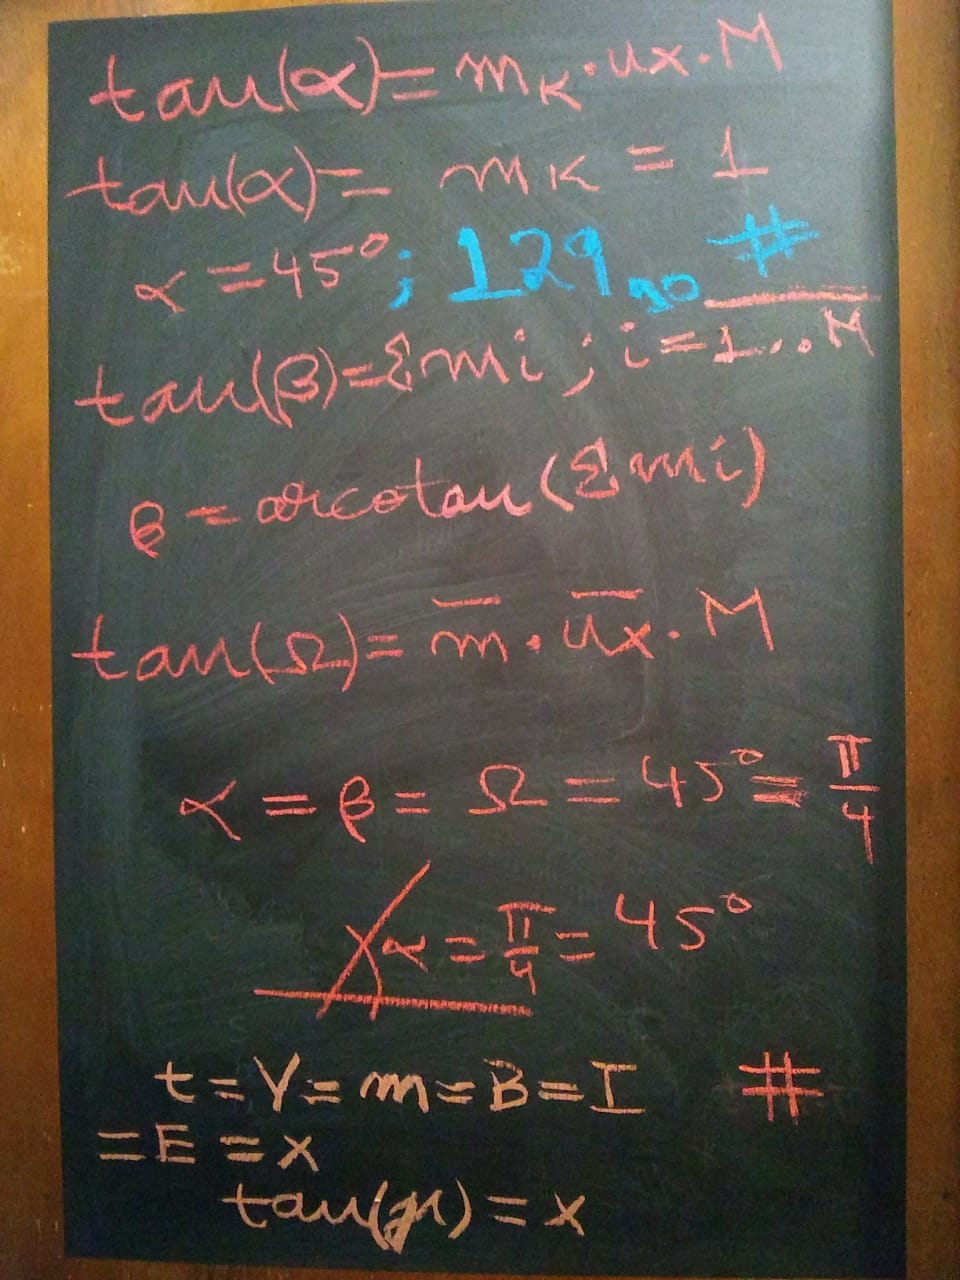 tan(α) = mK · ux · M
tan(α) = mK = 1
α = 45° ; 129₁₀ #
tan(β) = Σmi ; i = 1...M
β = arcotan(Σmi)
tan(Ω) = m̅ · u̅x̅ · M
α = β = Ω = 45° = π/4
α = π/4 = 45°
t = V = m = B = I #
= E = x
tan(μ) = x